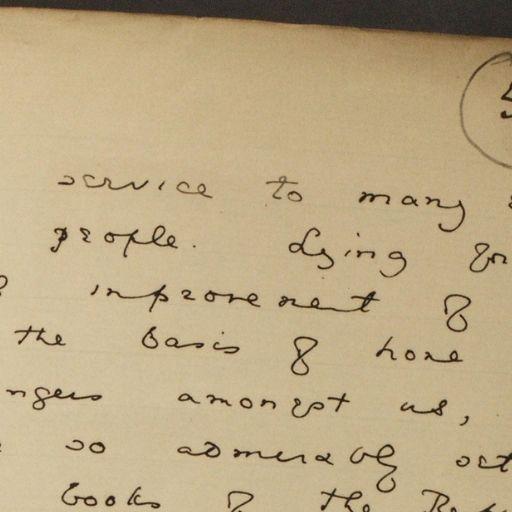 5
service to many
people. dying
improvement of
the basis of home
amongst us,
so admerably set
books of the